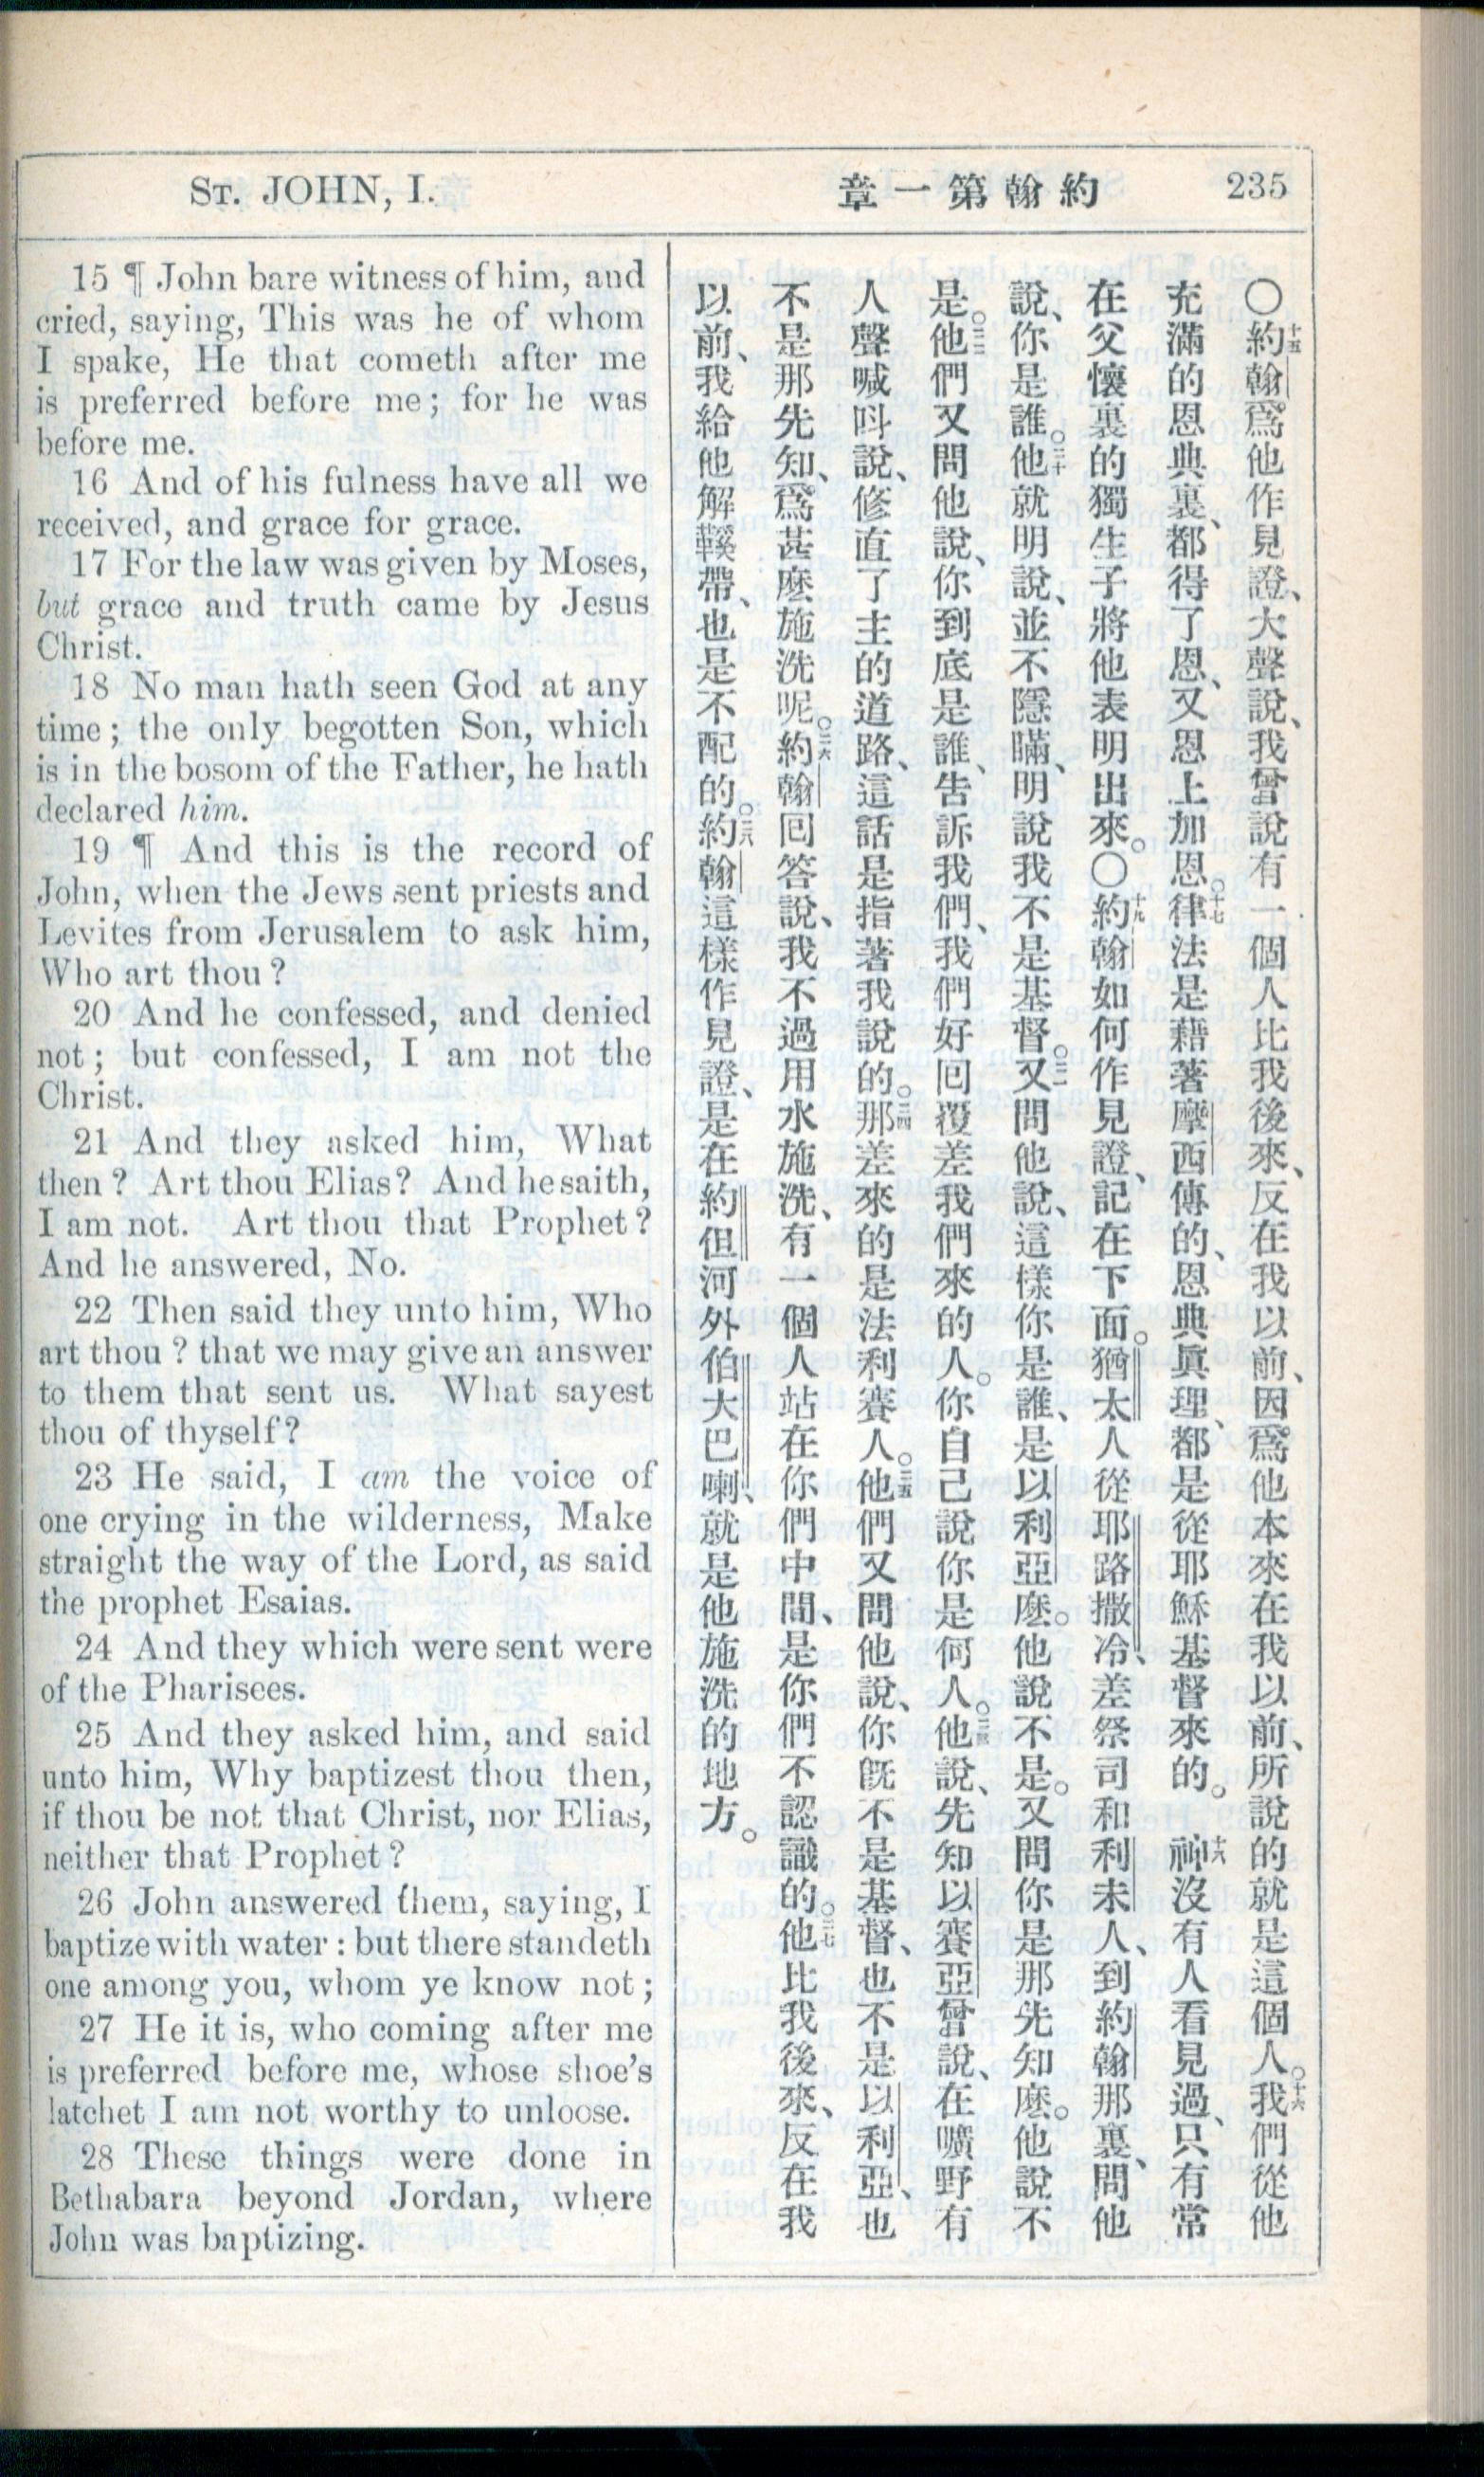 St. JOHN, I.
章一第翰約
235
15 ¶ John bare witness of him, and
cried, saying, This was he of whom
I spake, He that cometh after me
is preferred before me; for he was
before me.
16 And of his fulness have all we
received, and grace for grace.
17 For the law was given by Moses,
but grace and truth came by Jesus
Christ.
18 No man hath seen God at any
time; the only begotten Son, which
is in the bosom of the Father, he hath
declared him.
19 ¶ And this is the record of
John, when the Jews sent priests and
Levites from Jerusalem to ask him,
Who art thou?
20 And he confessed, and denied
not; but confessed, I am not the
Christ.
21 And they asked him, What
then? Art thou Elias? And he saith,
I am not. Art thou that Prophet?
And he answered, No.
22 Then said they unto him, Who
art thou? that we may give an answer
to them that sent us. What sayest
thou of thyself?
23 He said, I am the voice of
one crying in the wilderness, Make
straight the way of the Lord, as said
the prophet Esaias.
24 And they which were sent were
of the Pharisees.
25 And they asked him, and said
unto him, Why baptizest thou then,
if thou be not that Christ, nor Elias,
neither that Prophet?
26 John answered them, saying, I
baptize with water: but there standeth
one among you, whom ye know not;
27 He it is, who coming after me
is preferred before me, whose shoe's
latchet I am not worthy to unloose.
28 These things were done in
Bethabara beyond Jordan, where
John was baptizing.
〇十五約翰爲他作見證、大聲說、我曾說有一個人比我後來、反在我以前、因爲他本來在我以前、所說的就是這個人。十六我們從他
充滿的恩典裏、都得了恩、又恩上加恩。十七律法是藉著摩西傳的、恩典眞理、都是從耶穌基督來的。十八神沒有人看見過、只有常
在父懷裏的獨生子將他表明出來。〇十九約翰如何作見證、記在下面。猶太人從耶路撒冷、差祭司和利未人、到約翰那裏、問他
說、你是誰。二十他就明說、並不隱瞞、明說我不是基督。二一又問他說、這樣你是誰、是以利亞麽。他說不是。又問你是那先知麽。他說不
是。二二他們又問他說、你到底是誰、告訴我們、我們好回覆差我們來的人。你自己說你是何人。二三他說、先知以賽亞曾說、在曠野有
人聲喊叫說、修直了主的道路、這話是指著我說的。二四那差來的是法利賽人。二五他們又問他說、你旣不是基督、也不是以利亞、也
不是那先知、爲甚麽施洗呢。二六約翰回答說、我不過用水施洗、有一個人站在你們中間、是你們不認識的。二七他比我後來、反在我
以前、我給他解鞵帶、也是不配的。二八約翰這樣作見證、是在約但河外伯大巴喇、就是他施洗的地方。